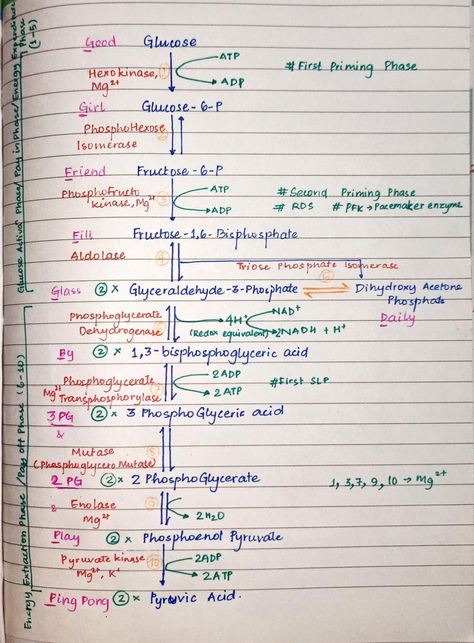 Glucose Activn Phase/Pay in Phase/Energy Expenditure Phase (1-5)
Good Glucose
Hexokinase, Mg2+ 1 ATP ADP # First Priming Phase
Girl Glucose-6-P
PhosphoHexose Isomerase 2
Friend Fructose-6-P
PhosphoFructo kinase, Mg2+ 3 ATP ADP # Second Priming Phase
# RDS # PFK → Pacemaker enzyme
Fill Fructose-1,6-Bisphosphate
Aldolase 4
Triose Phosphate Isomerase 5
Glass ② × Glyceraldehyde-3-Phosphate ⇌ Dihydroxy Acetone Phosphate
Daily
Energy Extraction Phase / Pay off Phase (6-10)
Phosphoglycerate Dehydrogenase 4H+ NAD+
(Redox equivalent) 2NADH + H+
By ② × 1,3-bisphosphoglyceric acid
Phosphoglycerate 7 2ADP
Mg2+ Transphosphorylase 2ATP #First SLP
3PG ② × 3 PhosphoGlyceric acid
&
Mutase 8
(Phosphoglycero Mutase)
2 PG ② × 2 PhosphoGlycerate 1, 3, 7, 9, 10 → Mg2+
& Enolase 9
Mg2+ 2H2O
Play ② × Phosphoenol Pyruvate
Pyruvate kinase 10 2ADP
Mg2+, K+ 2ATP
Ping Pong ② × Pyruvic Acid.